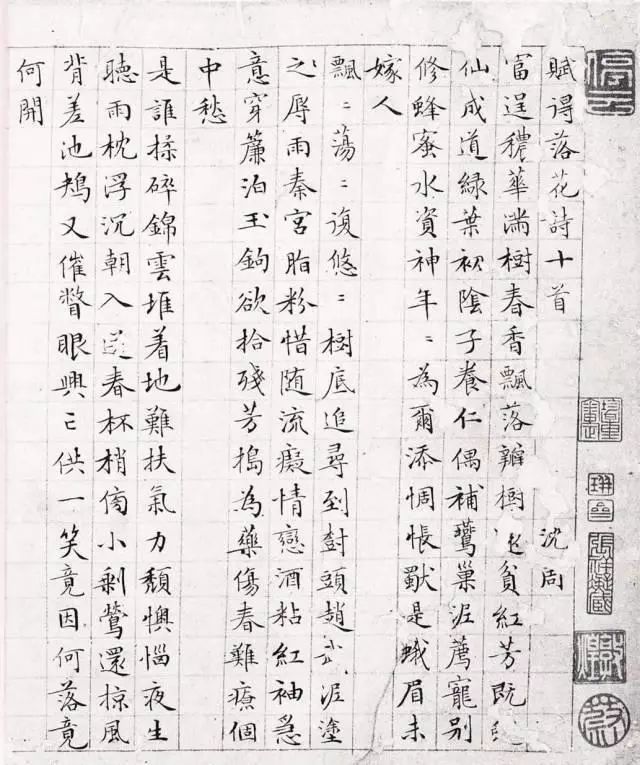 賦得落花詩十首 沈周
富逞穠華滿樹春香飄落瓣樹貧紅芳既
仙成道綠葉初陰子養仁偶補鶯巢泥薦寵別
修蜂蜜水資神年〻為爾添惆悵獸是蛾眉未
嫁人
飄〻蕩〻復悠〻樹底追尋到樹頭趙武泥塗
之辱雨秦宮脂粉惜隨流癡情戀酒粘紅袖急
意穿簾泊玉鉤欲拾殘芳搗為藥傷春難療個
中愁
是誰揉碎錦雲堆着地難扶氣力頹懊惱夜生
聽雨枕浮沉朝入送春杯梢傍小剩鶯還掠風
背差池鳩又催瞥眼興亡供一笑竟因何落竟
何開